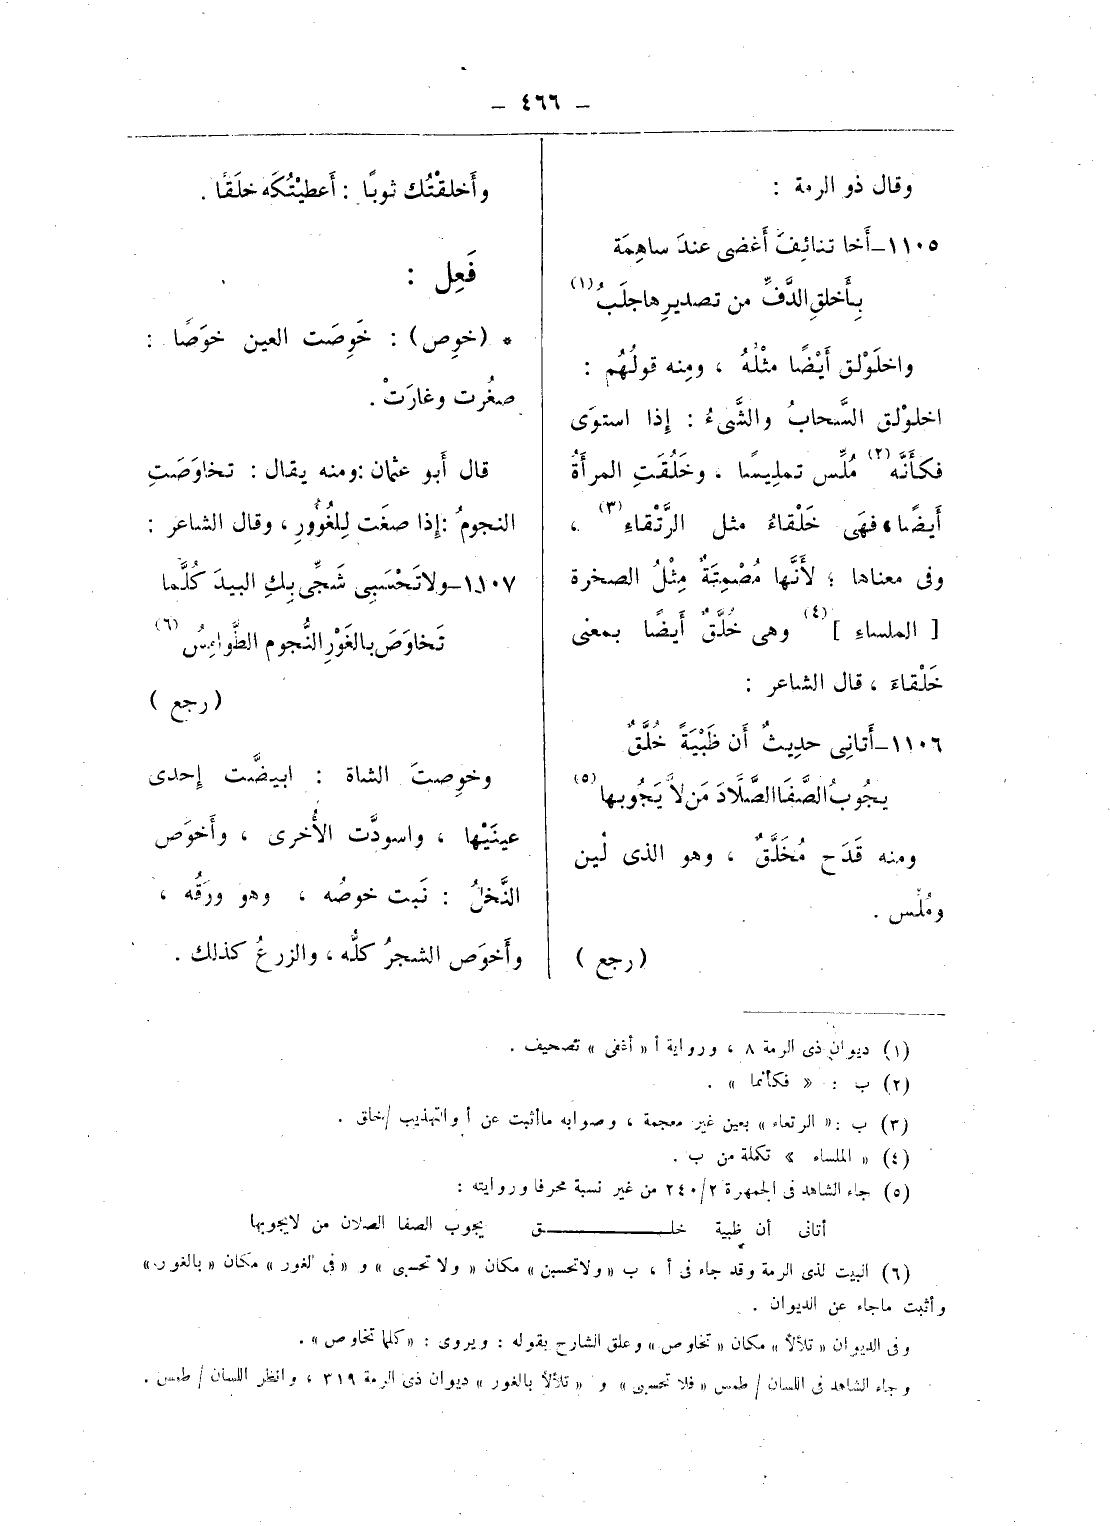 – ٤٦٦ –
وقال ذو الرمة :
١١٠٥–أَخا تنائِفَ أَغضى عندَ ساهِمَة
بِأَخلقِ الدَّفِّ من تصديرِها جلَبُ (١)
واخلَوْلق أَيْضًا مثْلُهُ ، ومِنه قولُهُم :
اخلوْلق السَّحابُ والشَّىءُ : إِذا استوَى
فكأَنَّه (٢) مُلِّس تملِيسًا ، وخَلُقَتِ المرأَةُ
أَيضًا، فهَى خَلْقاءُ مثل الرَّتْقاءِ (٣) ،
وفى معناها ؛ لأَنَّها مُصْمِتَةٌ مِثْلُ الصخرة
[ الملساء ] (٤) وهى خُلَّقٌ أَيضًا بمعنى
خَلْقاءَ ، قال الشاعر :
١١٠٦–أَتانِى حدِيثٌ أَن ظَبْيَةً خُلَّقٌ
يجُوبُ الصَّفَا الصَّلَّادَ مَن لاَّ يَجُوبها (٥)
ومنه قَدَح مُخَلَّقٌ ، وهو الذى لُين
ومُلِّس .
( رجع )
وأَخلقْتُك ثوبًا : أَعطيْتُكَه خلَقًا .
فَعِل :
* (خوِص) : خَوِصَت العين خوَصًا :
صغُرت وغارَتْ .
قال أَبو عثمان : ومنه يقال : تخاوَصَتِ
النجومُ : إِذا صغَت لِلغُوُورِ ، وقال الشاعر :
١١٠٧–ولا تَحْسَبِى شَجِّى بِكِ البيدَ كُلَّما
تَخاوَصَ بالغَوْرِ النُّجوم الطَّوامِسُ (٦)
( رجع )
وخوِصتَ الشاة : ابيضَّت إِحدى
عينَيْها ، واسودَّت الأُخرى ، وأَخوَص
النَّخلُ : نَبت خوصُه ، وهو ورَقُه ،
وأَخوَص الشجرُ كلُّه ، والزرعُ كذلك .
(١) ديوان ذى الرمة ٨ ، ورواية أ « أغفى » تصحيف .
(٢) ب : « فكأنما » .
(٣) ب : « الرتعاء » بعين غير معجمة ، وصوابه ما أثبت عن أ والتهذيب / خلق .
(٤) « الملساء » تكملة من ب .
(٥) جاء الشاهد فى الجمهرة ٢ / ٢٤٠ من غير نسبة محرفا وروايته :
أتانى أن ظبية خلـــــــق يجوب الصفا الصلان من لا يجوبها
(٦) البيت لذى الرمة وقد جاء فى أ ، ب « ولا تحسبن » مكان « ولا تحسبى » و « فى الغور » مكان « بالغور »
وأثبت ما جاء عن الديوان .
وفى الديوان « تلألأ » مكان « تخاوص » وعلق الشارح بقوله : ويروى : « كلما تخاوص » .
وجاء الشاهد فى اللسان / طمس « فلا تحسبى » و « تلألأ بالغور » ديوان ذى الرمة ٣١٩ ، وانظر اللسان / طمس .